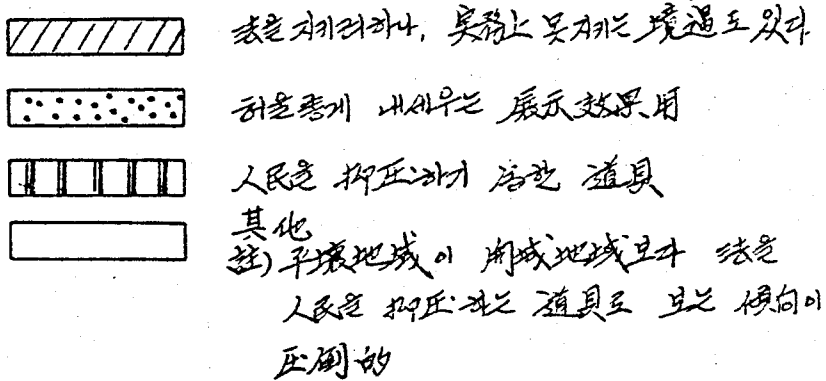 法을 지키려하나, 実務上 못지키는 境遇도 있다
허울좋게 내세우는 展示效果用
人民을 抑圧하기 爲한 道具
其他
註) 平壤地域이 開城地域보다 法을
人民을 抑圧하는 道具로 보는 傾向이
圧倒的